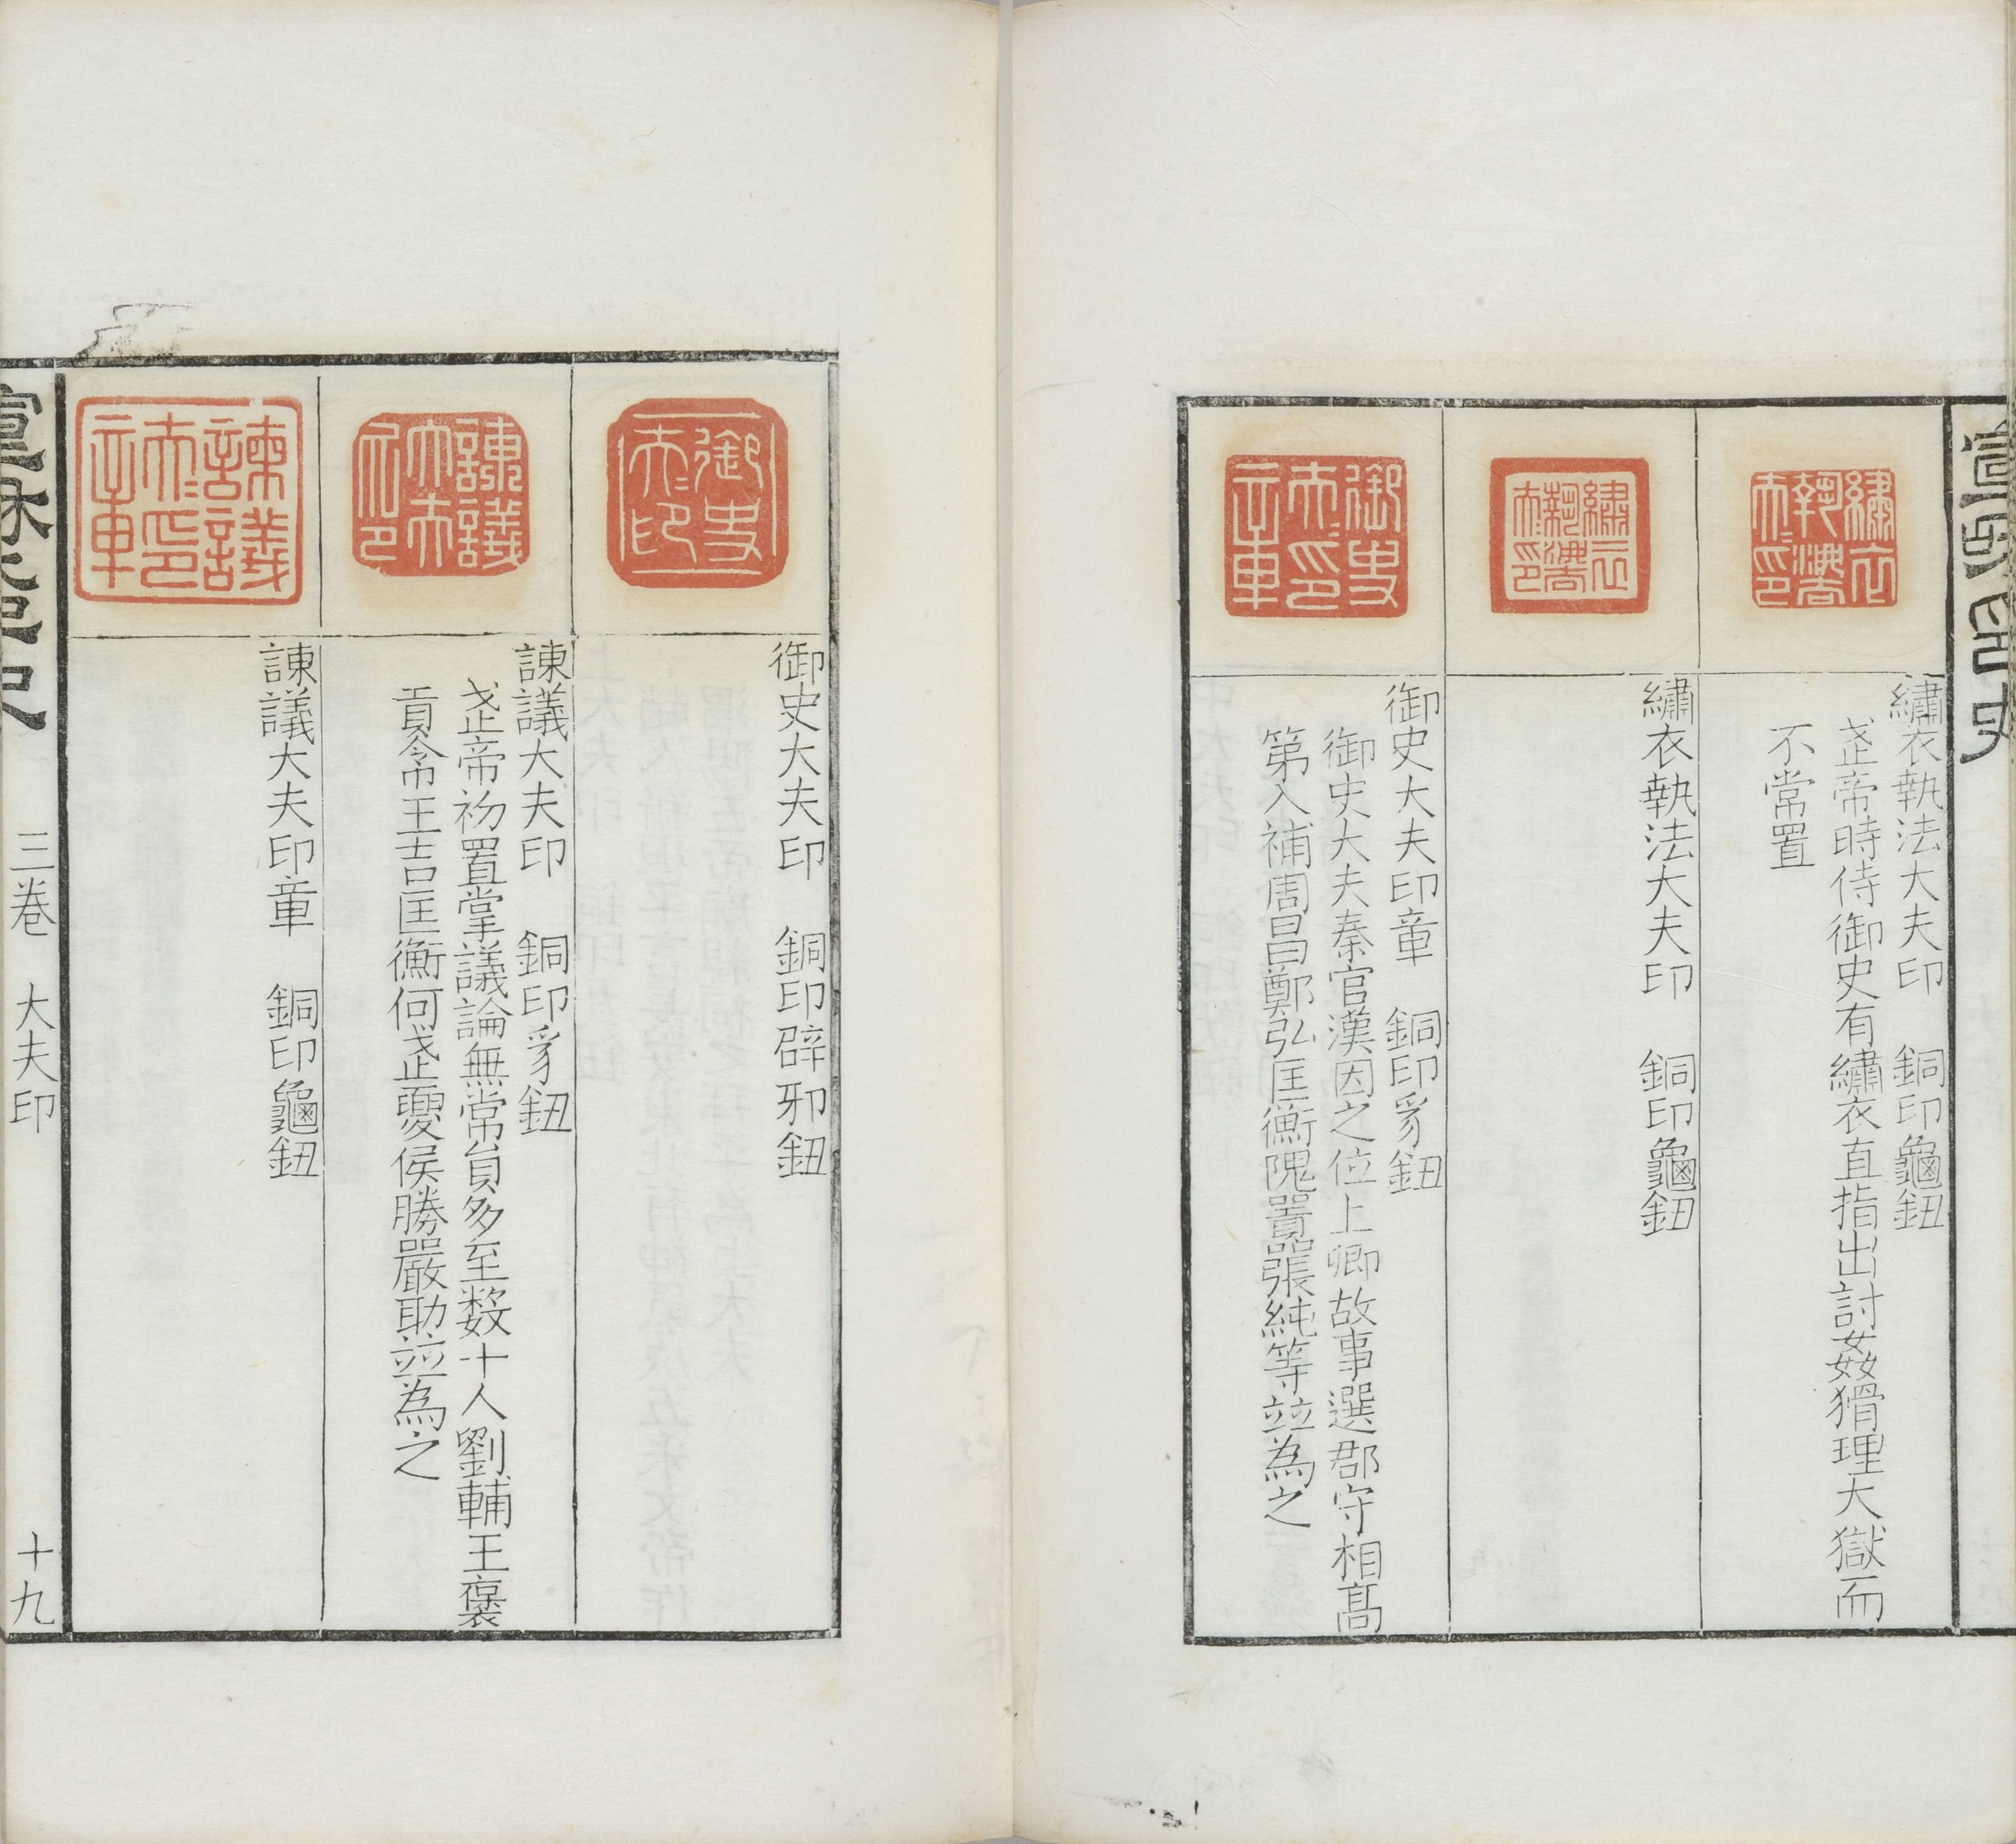 繡衣執法大夫印
繡衣執法大夫印　銅印龜鈕
武帝時侍御史有繡衣直指出討姦猾理大獄而
不常置
繡衣執法大夫印
繡衣執法大夫印　銅印龜鈕
御史大夫印章
御史大夫印章　銅印豸鈕
御史大夫秦官漢因之位上卿故事選郡守相高
第入補周昌鄭弘匡衡隗囂張純等並為之
御史大夫印
御史大夫印　銅印辟邪鈕
諫議大夫印
諫議大夫印　銅印豸鈕
武帝初置掌議論無常員多至数十人劉輔王褒
貢禽王吉匡衡何武夏侯勝嚴助並為之
諫議大夫印章
諫議大夫印章　銅印龜鈕
三卷　大夫印　十九